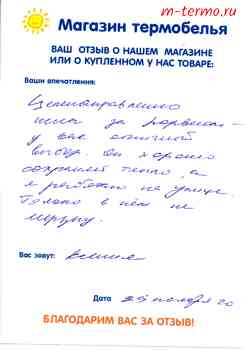 m-termo.ru
Магазин термобелья
ВАШ ОТЗЫВ О НАШЕМ МАГАЗИНЕ
ИЛИ О КУПЛЕННОМ У НАС ТОВАРЕ:
Ваши впечатления:
Целенаправленно
шла за
у вас отличный
выбор. Он хорошо
сохраняет тепло, а
я работаю на улице.
Только в нём не
мёрзну.
Вас зовут: Ксения
Дата 25 ноября 20
БЛАГОДАРИМ ВАС ЗА ОТЗЫВ!